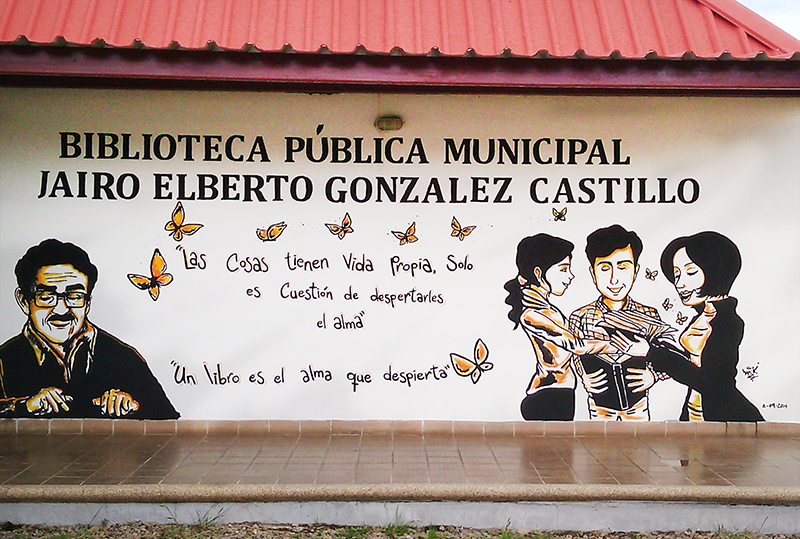 BIBLIOTECA PÚBLICA MUNICIPAL
JAIRO ELBERTO GONZALEZ CASTILLO
"Las Cosas tienen Vida Propia, Solo
es Cuestión de despertarles
el alma"
"Un libro es el alma que despierta"